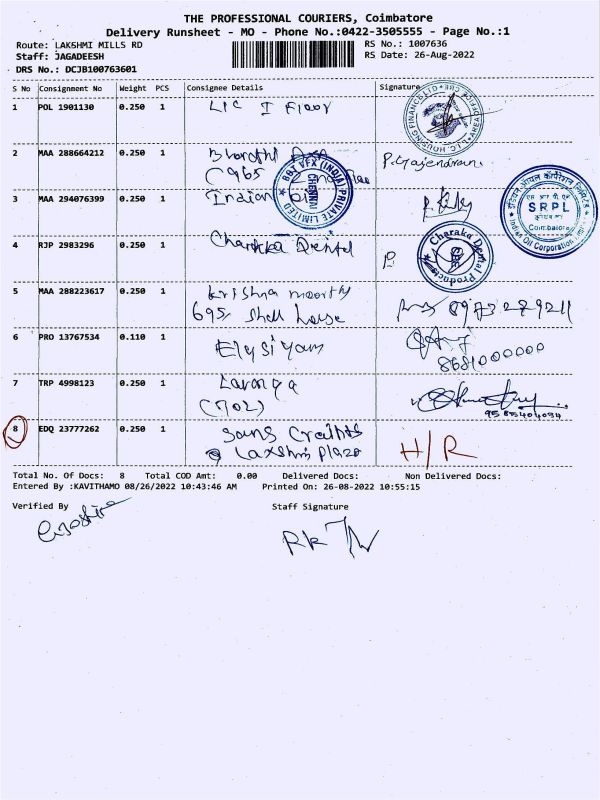 THE PROFESSIONAL COURIERS, Coimbatore
Delivery Runsheet - MO - Phone No.:0422-3505555 - Page No.:1
Route: LAKSHMI MILLS RD
RS No.: 1007636
Staff: JAGADEESH
RS Date: 26-Aug-2022
DRS No.: DCJB100763601
S No Consignment No Weight PCS Consignee Details Signature
1 POL 1901130 0.250 1 LIC I Floor
2 MAA 288664212 0.250 1 Bharathi
P. Gajendran
3 MAA 294076399 0.250 1 Indian Oil
BBT VFX (INDIA) PRIVATE LIMITED
CHENNAI
SRPL
Coimbatore
Indian Oil Corporation
4 RJP 2983296 0.250 1 Charaka Dental
Charaka Dental Products
5 MAA 288223617 0.250 1 Krishna moorthy
695, Shell house
6 PRO 13767534 0.110 1 Elysiyam
8681000000
7 TRP 4998123 0.250 1
(702)
8 EDQ 23777262 0.250 1
Laxshmi Plaza
H/R
Total No. Of Docs: 8 Total COD Amt: 0.00 Delivered Docs: Non Delivered Docs:
Entered By :KAVITHAMO 08/26/2022 10:43:46 AM Printed On: 26-08-2022 10:55:15
Verified By Staff Signature